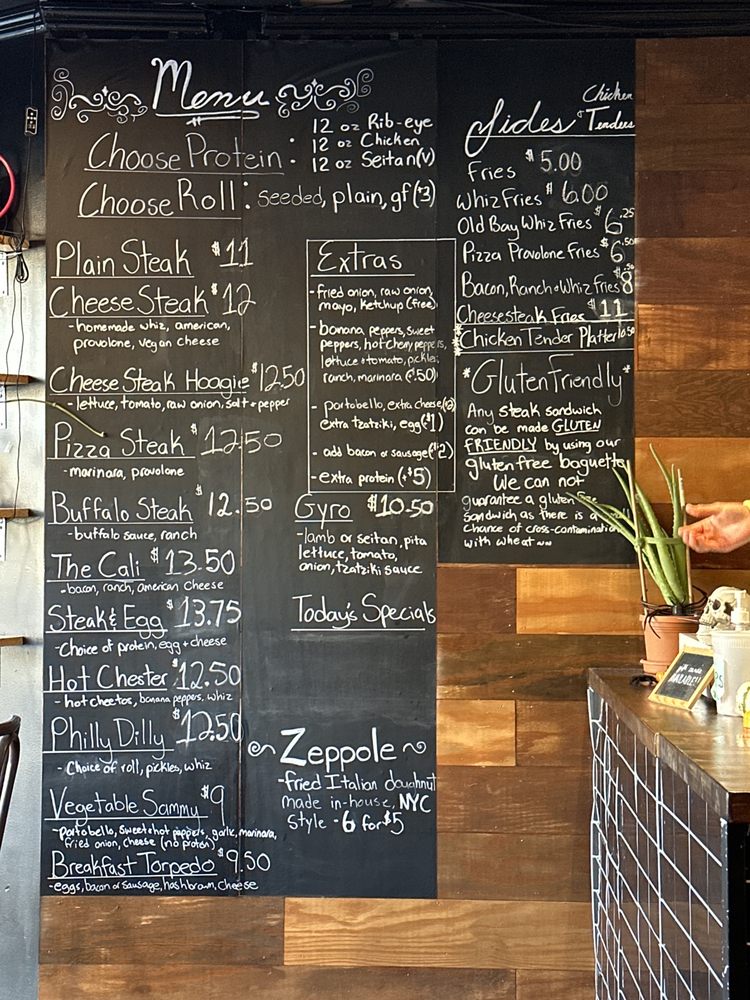 Menu
Choose Protein:
12 oz Rib-eye
12 oz Chicken
12 oz Seitan(v)
Choose Roll: seeded, plain, gf(+$3)
Plain Steak $11
Cheese Steak $12
-homemade whiz, american,
provolone, vegan cheese
Cheese Steak Hoagie $12.50
-lettuce, tomato, raw onion, salt + pepper
Pizza Steak $12.50
-marinara, provolone
Buffalo Steak $12.50
-buffalo sauce, ranch
The Cali $13.50
-bacon, ranch, american cheese
Steak & Egg $13.75
-Choice of protein, egg + cheese
Hot Chester $12.50
-hot cheetos, banana peppers, whiz
Philly Dilly $12.50
-Choice of roll, pickles, whiz
Vegetable Sammy $9
-portobello, sweet+hot peppers, garlic, marinara,
fried onion, cheese (no protein)
Breakfast Torpedo $9.50
-eggs, bacon or sausage, hashbrown, cheese
Extras
-fried onion, raw onion,
mayo, ketchup (free)
-banana peppers, sweet
peppers, hot cherry peppers,
lettuce + tomato, pickles,
ranch, marinara ($.50)
-portobello, extra cheese($2)
extra tzatziki, egg($1)
-add bacon or sausage($2)
-extra protein (+$5)
Gyro $10.50
-lamb or seitan, pita
lettuce, tomato,
onion, tzatziki sauce
Today's Specials
Zeppole
-fried Italian doughnut
made in-house, NYC
style - 6 for $5
Sides & Chicken Tenders
Fries $5.00
Whiz Fries $6.00
Old Bay Whiz Fries $6.25
Pizza Provolone Fries $6.50
Bacon, Ranch + Whiz Fries $8.50
Cheesesteak Fries $11
*Chicken Tender Platter 10.50
*Gluten Friendly*
Any steak sandwich
can be made GLUTEN
FRIENDLY by using our
gluten free baguette
We can not
guarantee a gluten
sandwich as there is a
chance of cross-contamination
with wheat